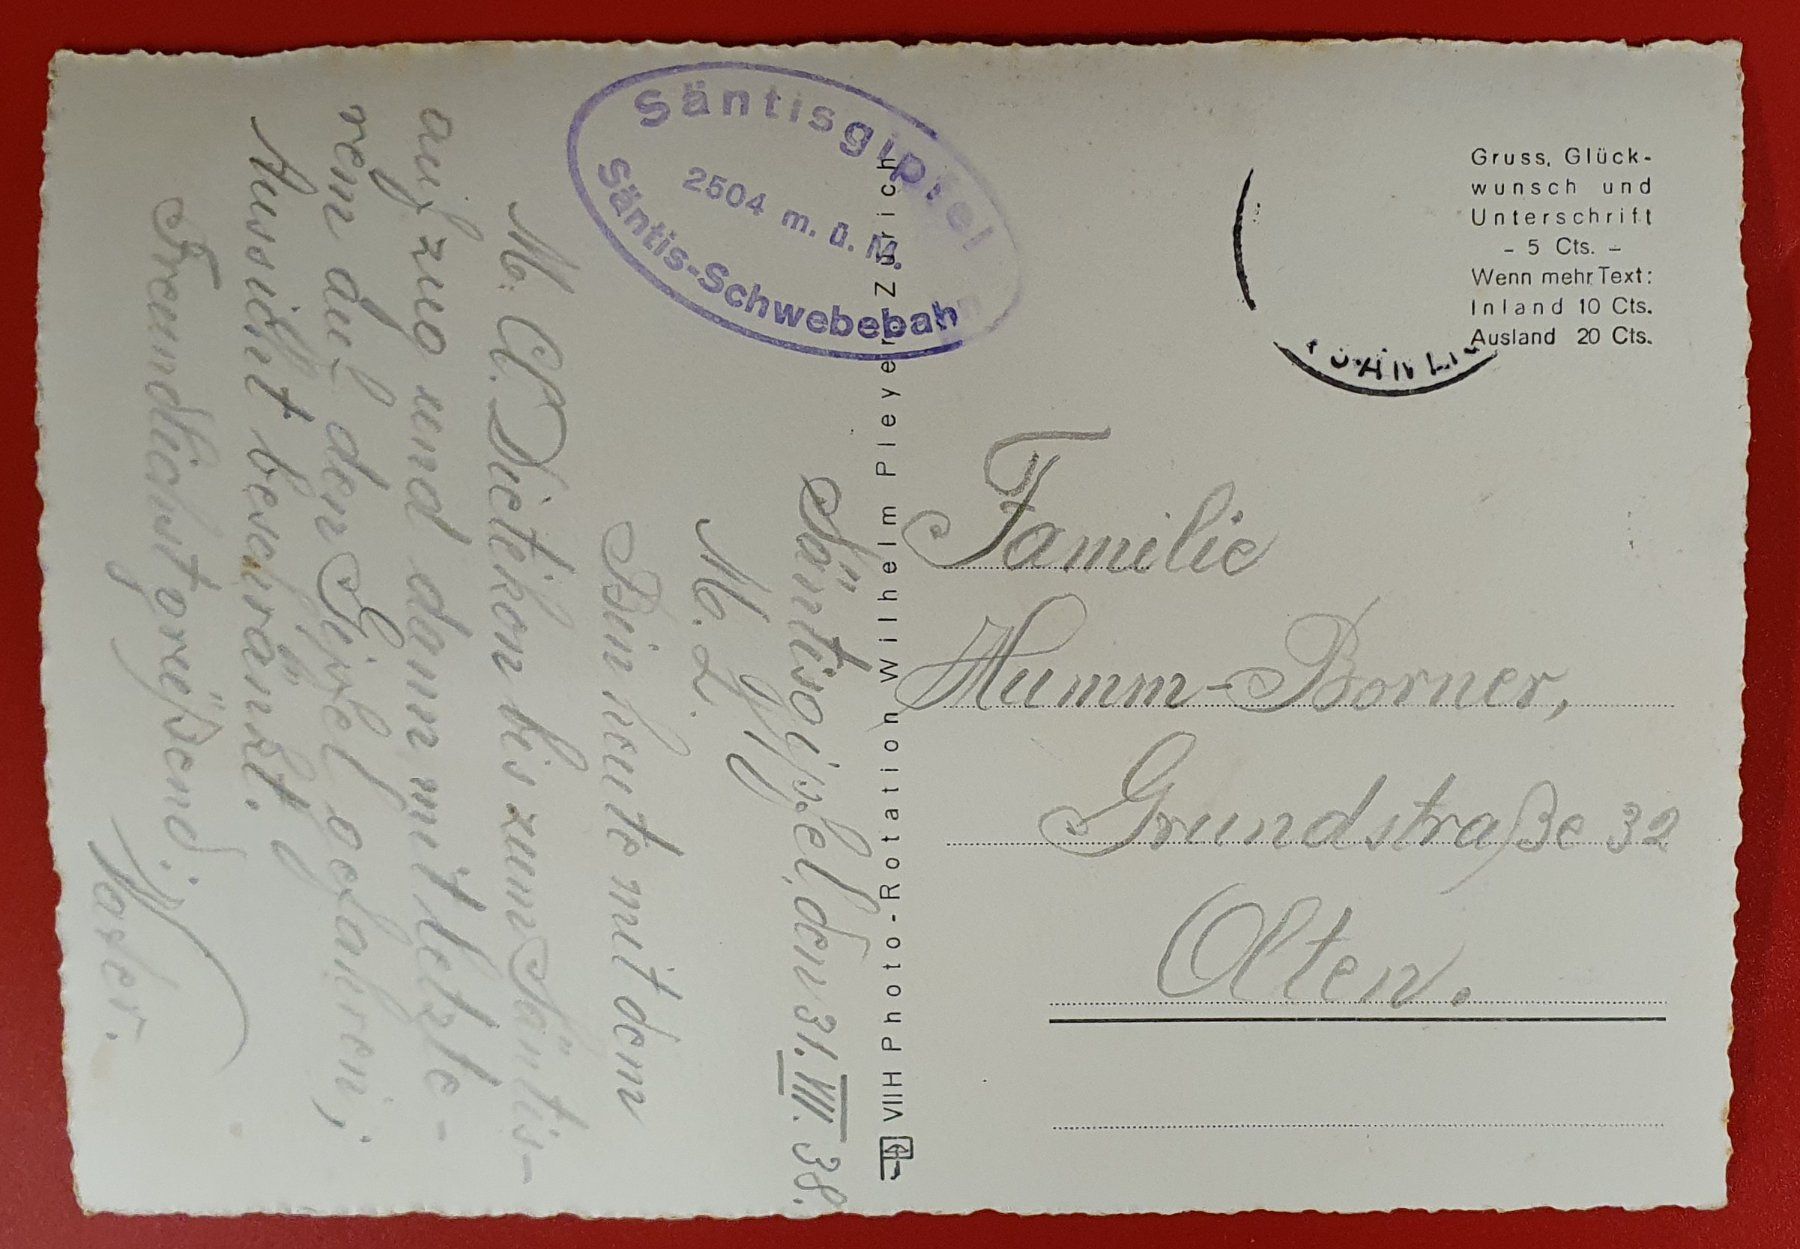 Säntisgipfel
2504 m. ü. M.
Säntis-Schwebebahn
Gruss, Glück-
wunsch und
Unterschrift
- 5 Cts. -
Wenn mehr Text:
Inland 10 Cts.
Ausland 20 Cts.
VIIH Photo-Rotation Wilhelm Pleyer Zürich
Säntisgipfel, den 31. VII. 38.
M. L.
Bin heute mit dem
Dietikon bis zum Säntis-
aufzug und dann mit letzte-
rem auf den Gipfel gefahren;
Aussicht beschränkt.
Freundlichst grüßend:
Familie
Humm-Borner,
Grundstraße 32
Olten.